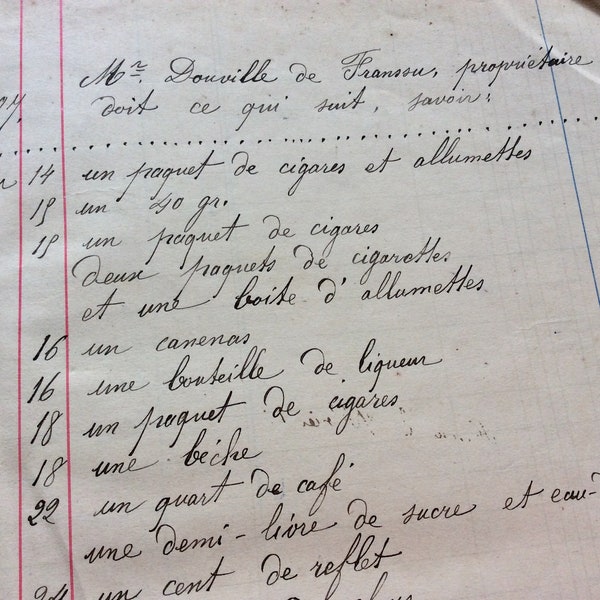 Mr. Douville de Franssu, propriétaire
doit ce qui suit, savoir:
14 un paquet de cigares et allumettes
15 un 40 gr.
15 un paquet de cigares
deux paquets de cigarettes
et une boite d'allumettes
16 un canenas
16 une bouteille de liqueur
18 un paquet de cigares
18 une bêche
22 un quart de café
une demi-livre de sucre et eau-
24 un cent de reflet